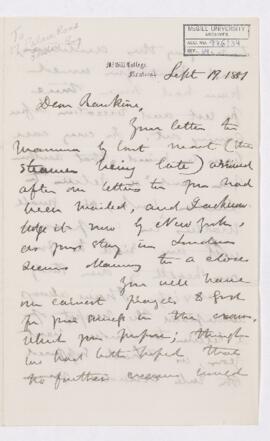 McGILL UNIVERSITY
ARCHIVES
ACC. NO. 976/34
REF.
To
McGill College
Montreal
Sept 19. 1881
Dear Rankine,
Your letter to
Mamma by last mail (the
steamer being late) arrived
after our letters to you had
been mailed, and I acknow-
ledge it now by New York,
as your stay in London
seems drawing to a close
You will have
our earnest prayers to God
for your success in the exam.
which you propose; though
we had both hoped that
no further exams would